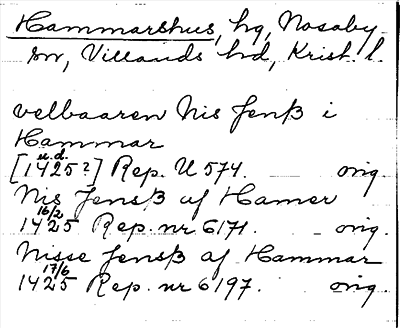 Hammarshus, hg, Nosaby
sn, Villands hd, Krist. l.
velbaaren Nis Jenß i
Hammar
[1425?] u.d. Rep. U 574. orig.
Nis Jenß af Hamer
16/2 1425 Rep. nr 6171. orig.
Nisse Jenß af Hammar
17/6 1425 Rep. nr 6197. orig.